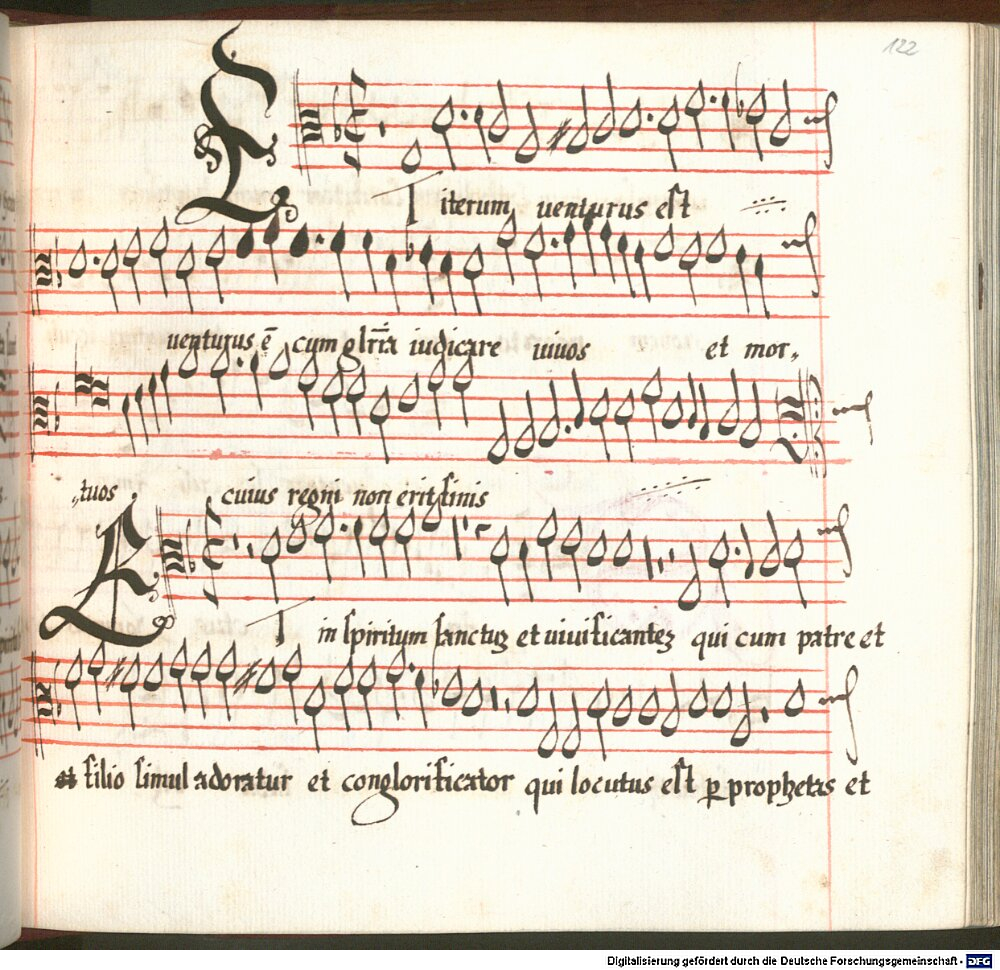 122
ET iterum uenturus est
uenturus ē cum glr̄ia iudicare uiuos et mor„
„tuos cuius regni non erit finis
ET in spiritum sanctuʒ et uiuificanteʒ qui cum patre et
et filio simul adoratur et conglorificator qui locutus est ꝑ prophetas et
Digitalisierung gefördert durch die Deutsche Forschungsgemeinschaft - DFG